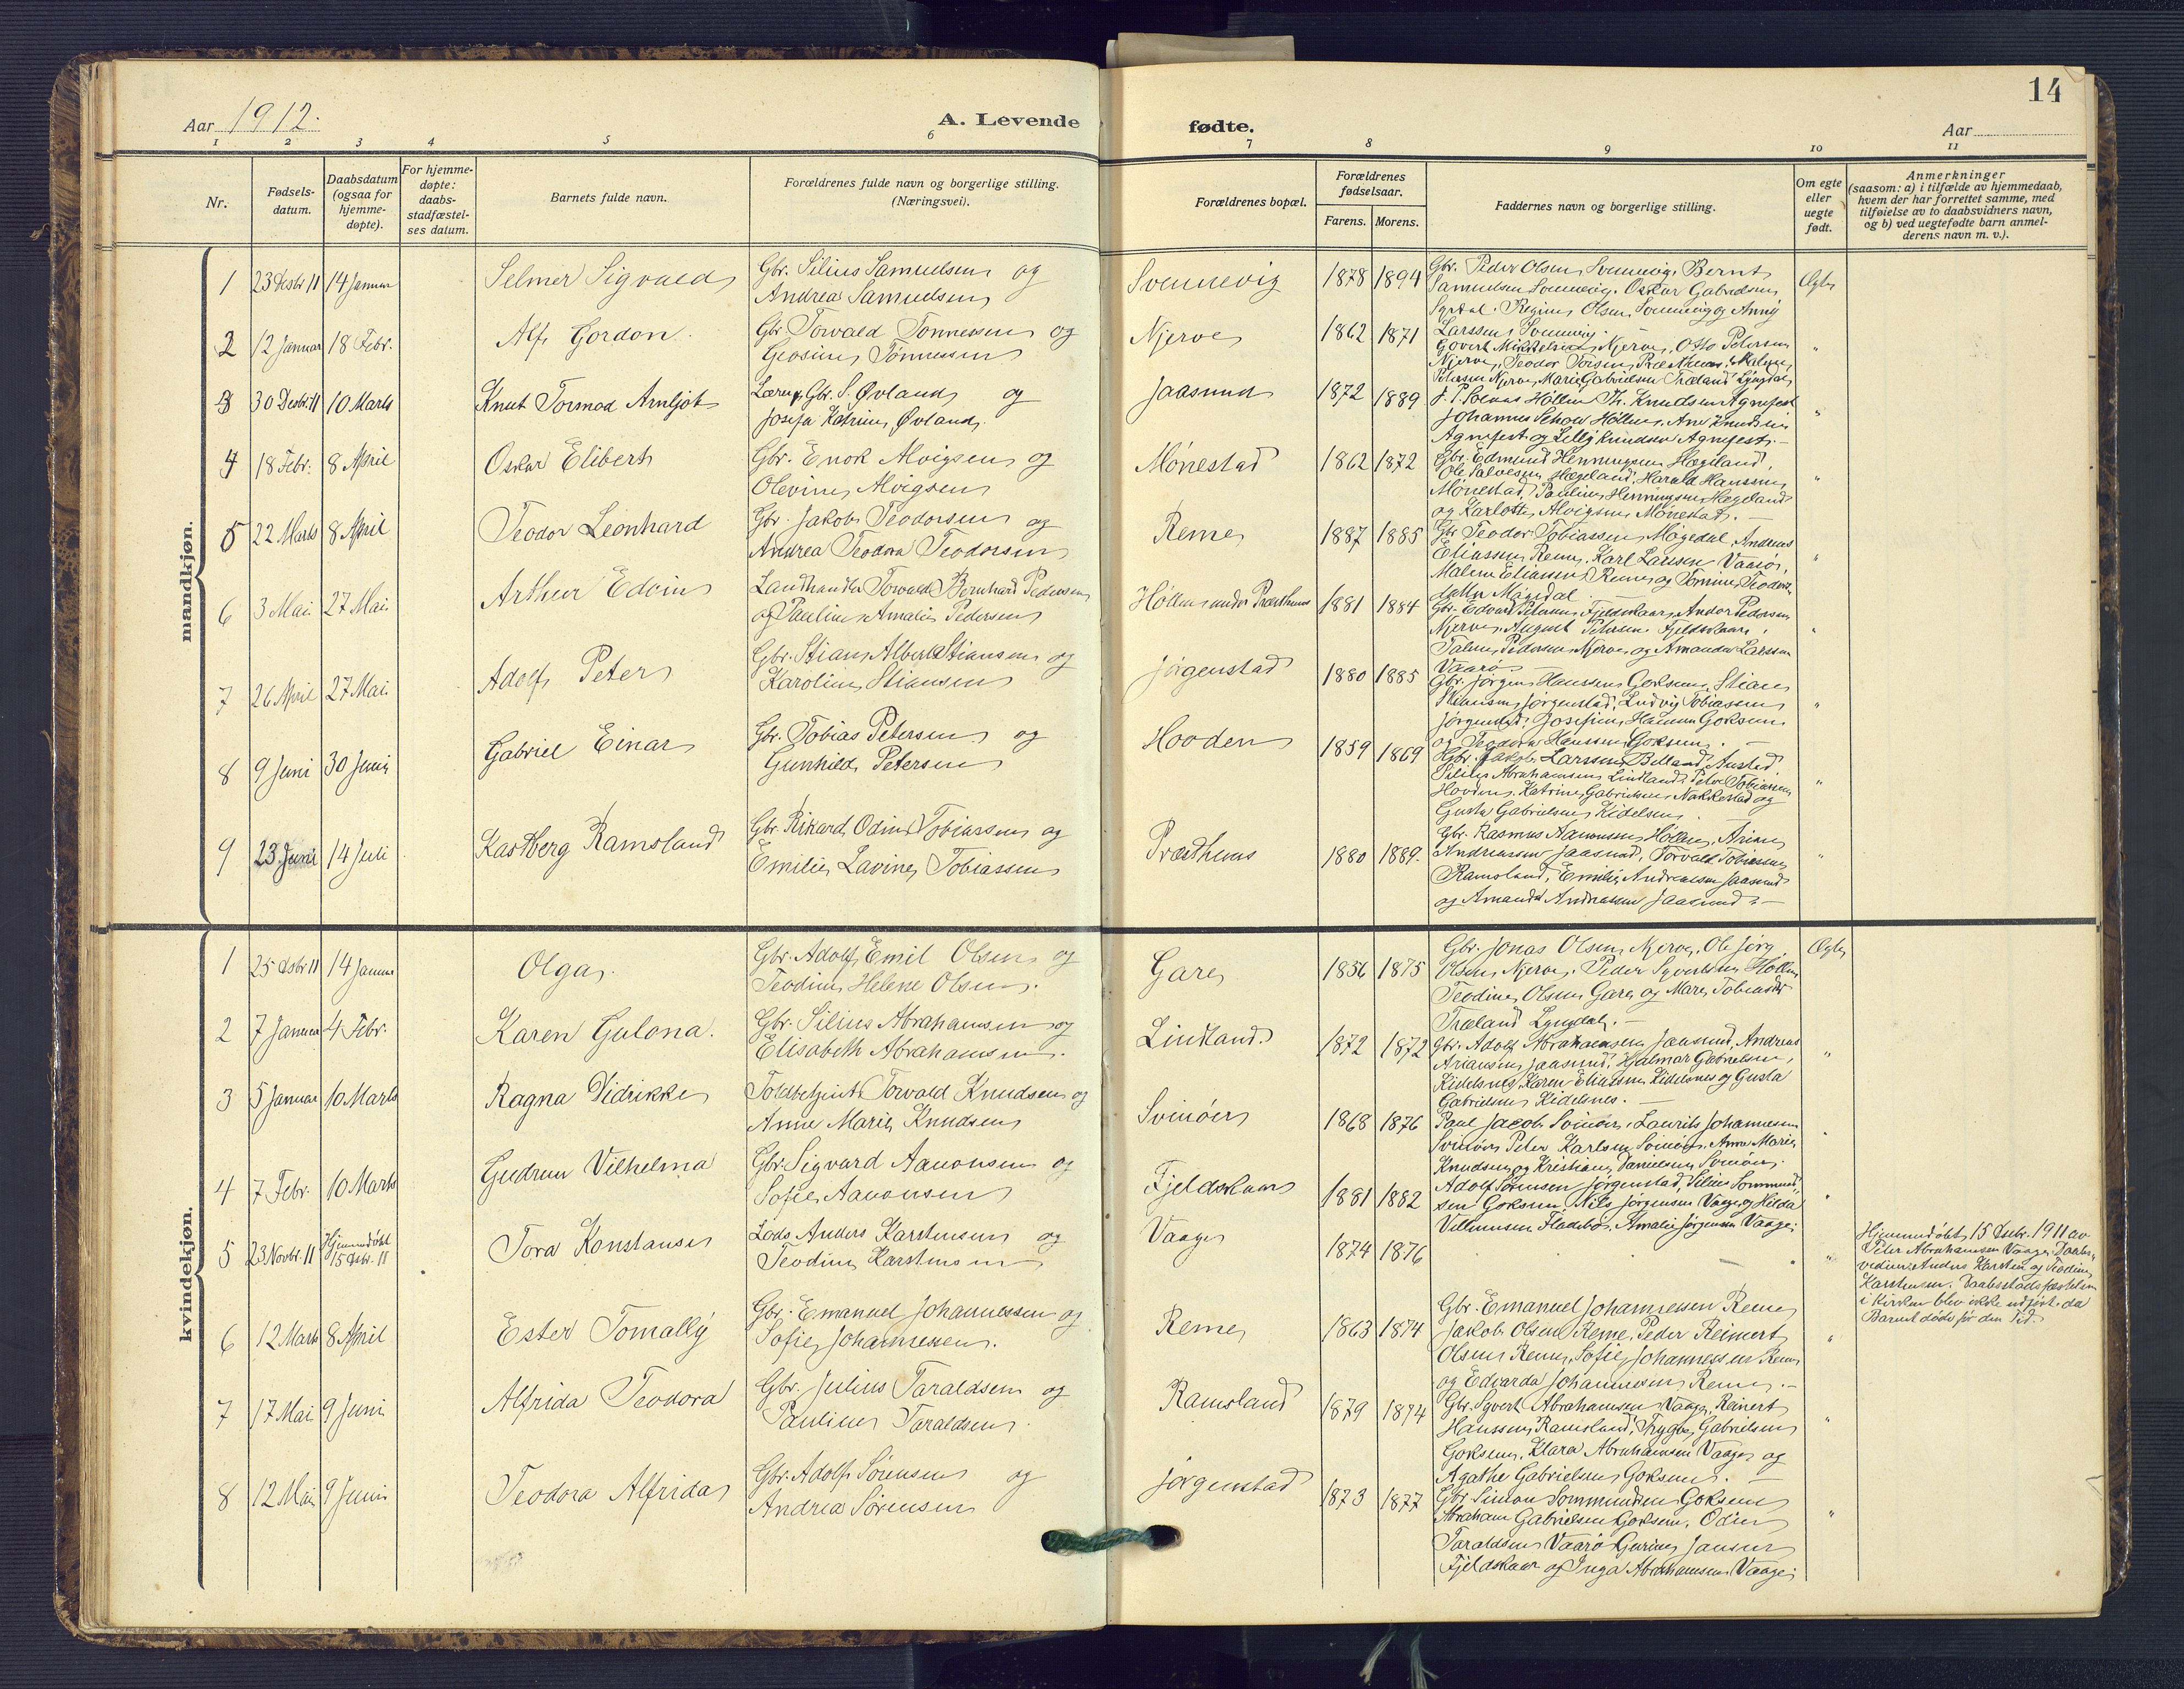 14
Aar 1912.
A. Levende fødte.
Aar
1 2 3 4 5 6 7 8 9 10 11
Nr.
Fødsels-
datum.
Daabsdatum
(ogsaa for
hjemme-
døpte).
For hjemme-
døpte:
daabs-
stadfæstel-
ses datum.
Barnets fulde navn.
Forældrenes fulde navn og borgerlige stilling.
(Næringsvei).
Forældrenes bopæl.
Forældrenes
fødselsaar.
Farens. Morens.
Faddernes navn og borgerlige stilling.
Om egte
eller
uegte
født.
Anmerkninger
(saasom: a) i tilfælde av hjemmedaab,
hvem der har forrettet samme, med
tilføielse av to daabsvidners navn,
og b) ved uegtefødte barn anmel-
derens navn m. v.).
mandkjøn.
1 23 Desbr 11 14 Januar Selmer Sigvald
Gbr. Silius Samuelsen og
Andrea Samuelsen
Svennevig 1878 1894
Gbr. Peder Olsen Svennevig, Bernt
Samuelsen Svennevig. Oskar Gabrielsen
Syrdal. Regine Olsen Svennevig og Anny
Larssen Svennevig.
Ægte
2 12 Januar 18 Febr. Alf Gordon.
Gbr Torvald Tønnessen og
Gosine Tønnessen
Njerve 1862 1871
Govert Mikkelsen Njerve, Otto Petersen
Njerve, Teodor Præsthus, Malene
Petersen Njerve, Marie Gabrielsen Træland Lyngdal
"
3 30 Desbr. 11 10 Marts Knut Tormod Arnljot
Lærer, Gbr. S. Øvland og
Josefa Katrine Øvland.
Jaasund 1872 1889
Høllen Th. Knudsen Agnefest
Johannes Høllen, Ane Knudsen
Agnefest og Lilly Knudsen Agnefest. —
"
4 18 Febr. 8 April Oskar Elibert
Gbr. Enok Alvigsen og
Olevine Alvigsen
Mønestad 1862 1872
Gbr. Edmund Henningsen Hægeland,
Ole Salvesen Hægeland, Harald Hanssen
Mønestad, Pauline Henningsen Hægeland
og Karlotte Alvigsen Mønestad. —
"
5 22 Marts 8 April Teodor Leonhard
Gbr. Jakob Teodorsen og
Andrea Teodora Teodorsen
Reme 1887 1885
Gbr Teodor Tobiassen Møgedal, Andreas
Eliassen Reme, Karl Larsen Vaarø,
Malene Eliassen Reme og Tomine Teodors-
datter Møgedal.
"
6 3 Mai 27 Mai. Arthur Edvin
Landhandler Torvald Bernhard Pedersen
og Pauline Amalie Pedersen
Høllen under Præsthus 1881 1884
Gbr. Edvard Petersen Fjeldskaar, Andor Pedersen
Njerve, August Petersen Fjeldskaar,
Talene Pedersen Njerve og Amanda Larssen
Vaarø —
"
7 26 April 27 Mai. Adolf Peter
Gbr. Stian Albert Stiansen og
Karoline Stiansen
Jørgenstad 1880 1885
Gbr. Jørgen Hanssen Goksem, Stian
Stiansen Jørgenstad, Ludvig Tobiassen
Jørgenstad, Josefine Hansen Goksem
og Teodora Hanssen Goksem. —
"
8 9 Juni 30 Juni Gabriel Einar
Gbr. Tobias Petersen og
Gunhild Petersen
Hooden 1859 1869
Gbr. Jakob Larssen Austad
Silius Abrahamsen Lindland, Peter Tobiassen
Hovden. Katrine Gabrielsen Nakkestad og
Gusta Gabrielsen Kidelsnes.
"
9 23. Juni 14 Juli Kastberg Ramsland
Gbr. Rikard Odin Tobiassen og
Emilie Lavine Tobiassen
Præsthus 1880 1889.
Gbr. Rasmus Aanonsen Høllen, Arian
Andreassen Jaasund, Torvald Tobiassen
Ramsland, Emilie Andreassen Jaasund
og Amanda Andreassen Jaasund. —
"
kvindekjøn.
1 25 Dsbr 11 14 Januar Olga.
Gbr. Adolf Emil Olsen og
Teodine Helene Olsen.
Gare 1856 1875
Gbr. Jonas Olsen, Njerve, Ole Jørg.
Olsen Njerve. Peder Syvertsen Høllen
Teodine Olsen Gare og Mare
Træland Lyngdal. —
Ægte
2 7 Januar 4 Febr. Karen Gulona.
Gbr. Silius Abrahamsen og
Elisabeth Abrahamsen.
Lindland 1872 1872
Gbr. Adolf Abrahamsen Jaasund, Andreas
Ariansen Jaasund, Hjalmar Gabrielsen,
Kidelsnes, Karen Eliassen Kidelsnes og Gusta
Gabrielsen Kidelsnes. —
"
3 5 Januar 10 Marts Ragna Didrikke
Toldbetjent Torvald Knudsen og
Anne Marie Knudsen
Svinøer 1868 1876
Paul Jacob Svinøer, Laurits Johannesen
Svinøer, Peter Karlsen Svinøer, Anne Marie
Knudsen og Kristiane Danielsen Svinøer.
"
4 7 Febr. 10 Marts Gudrun Vilhelma
Gbr. Sigvard Aanonsen og
Sofie Aanonsen
Fjeldskaar 1881 1882
Adolf Sørensen Jørgenstad, Silius Sommund-
sen Goksem, Nils Jørgensen Vaage og Hilda
Villumsen Fladebø. Amalie Jørgensen Vaage.
"
5 23 Novbr. 11 Hjemmedøbt
15 Debr. 11 Tora Konstanse
Lods Anders Karstensen og
Teodine Karstensen
Vaage 1874 1876
"
Hjemmedøbt 15 Debr. 1911 av
Peter Abrahamsen Vaage, Daabs-
vidner: Anders Karsten og Teodine
Karstensen. Daabsstadfæstelsen
i Kirken blev ikke udført, da
Barnet døde før den Tid.
6 12 Marts 8 April Ester Tomally
Gbr. Emanuel Johannessen og
Sofie Johannessen.
Reme 1863 1874
Gbr. Emanuel Johannessen Reme
Jakob Olsen Reme, Peder Reinert
Olsen Reme, Sofie Johannessen Reme
og Edvarda Johannesen Reme. —
"
7 17 Mai 9 Juni Alfrida Teodora
Gbr. Julius Taraldsen og
Pauline Taraldsen.
Ramsland 1879 1874
Gbr. Syvert Abrahamsen Vaage, Reinert
Hanssen Ramsland, Trygve Gabrielsen
Goksem, Klara Abrahamsen Vaage og
Agathe Gabrielsen Goksem. —
"
8 12 Mai 9 Juni Teodora Alfrida
Gbr. Adolf Sørensen og
Andrea Sørensen
Jørgenstad 1873 1877
Gbr. Simon Sommundsen Goksem
Abraham Gabrielsen Goksem, Odin
Taraldsen Vaarø, Gurine Jansen
Fjeldskaar og Inga Abrahamsen Vaage.
"